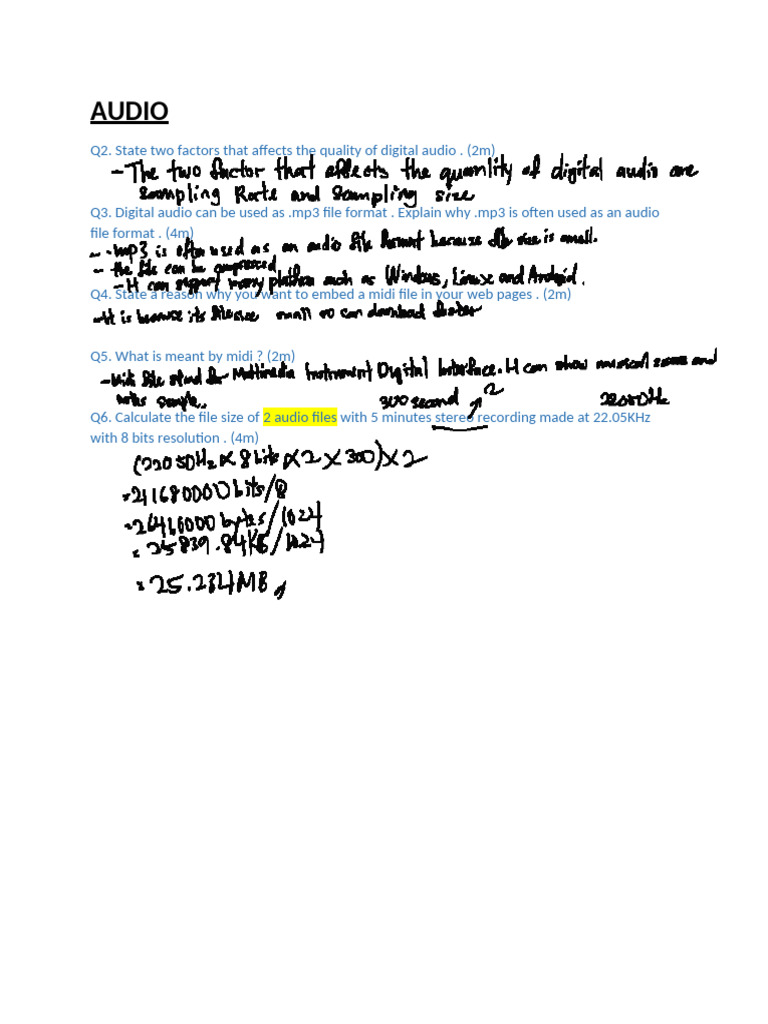 AUDIO
Q2. State two factors that affects the quality of digital audio . (2m)
- The two factor that affects the quanlity of digital audio are
sampling Rate and sampling size
Q3. Digital audio can be used as .mp3 file format . Explain why .mp3 is often used as an audio
file format . (4m)
- .mp3 is often used as an audio file format because size is small.
- the file can be compressed
- It can support many platform such as Windows, Linux and Android.
Q4. State a reason why you want to embed a midi file in your web pages . (2m)
- It is because its file size small so can download faster
Q5. What is meant by midi ? (2m)
- Midi file stand for Multimedia Instrument Digital Interface. It can show musical and
notes sample.
300 second 2 22050Hz
Q6. Calculate the file size of 2 audio files with 5 minutes stereo recording made at 22.05KHz
with 8 bits resolution . (4m)
(22050Hz × 8 bits × 2 × 300) × 2
= 211680000 bits / 8
= 26460000 bytes / 1024
= 25839.84KB / 1024
= 25.234MB